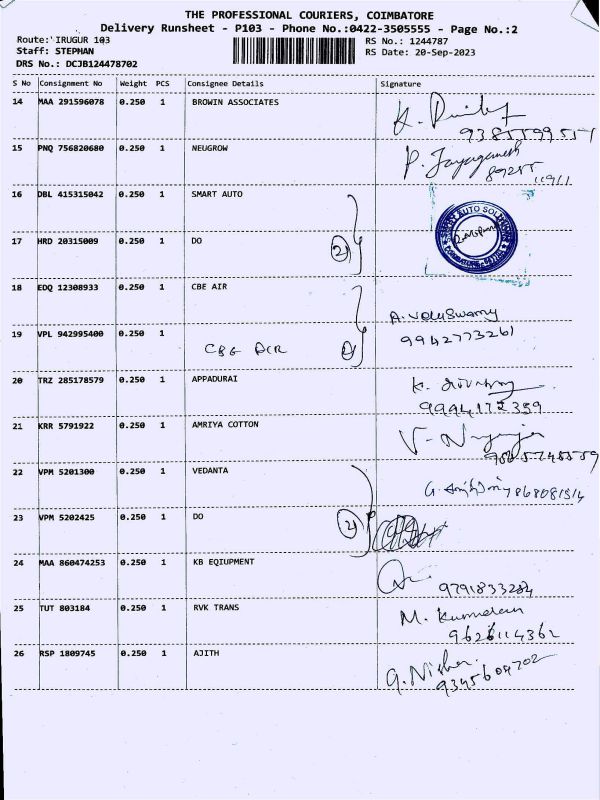 THE PROFESSIONAL COURIERS, COIMBATORE
Delivery Runsheet - P103 - Phone No.:0422-3505555 - Page No.:2
Route: IRUGUR 103
RS No.: 1244787
Staff: STEPHAN
RS Date: 20-Sep-2023
DRS No.: DCJB124478702
S No Consignment No Weight PCS Consignee Details Signature
14 MAA 291596078 0.250 1 BROWIN ASSOCIATES
15 PNQ 756820680 0.250 1 NEUGROW P. Jayaganesh
16 DBL 415315042 0.250 1 SMART AUTO
17 HRD 20315009 0.250 1 DO 2
18 EDQ 12308933 0.250 1 CBE AIR
A. VeluSwamy
19 VPL 942995400 0.250 1 9942773261
CBE AIR 2
20 TRZ 285178579 0.250 1 APPADURAI
9994172359
21 KRR 5791922 0.250 1 AMRIYA COTTON
22 VPM 5201300 0.250 1 VEDANTA
23 VPM 5202425 0.250 1 DO 2
24 MAA 860474253 0.250 1 KB EQIUPMENT
9791833284
25 TUT 803184 0.250 1 RVK TRANS M. Kumaran
9626114362
26 RSP 1809745 0.250 1 AJITH
9345604702